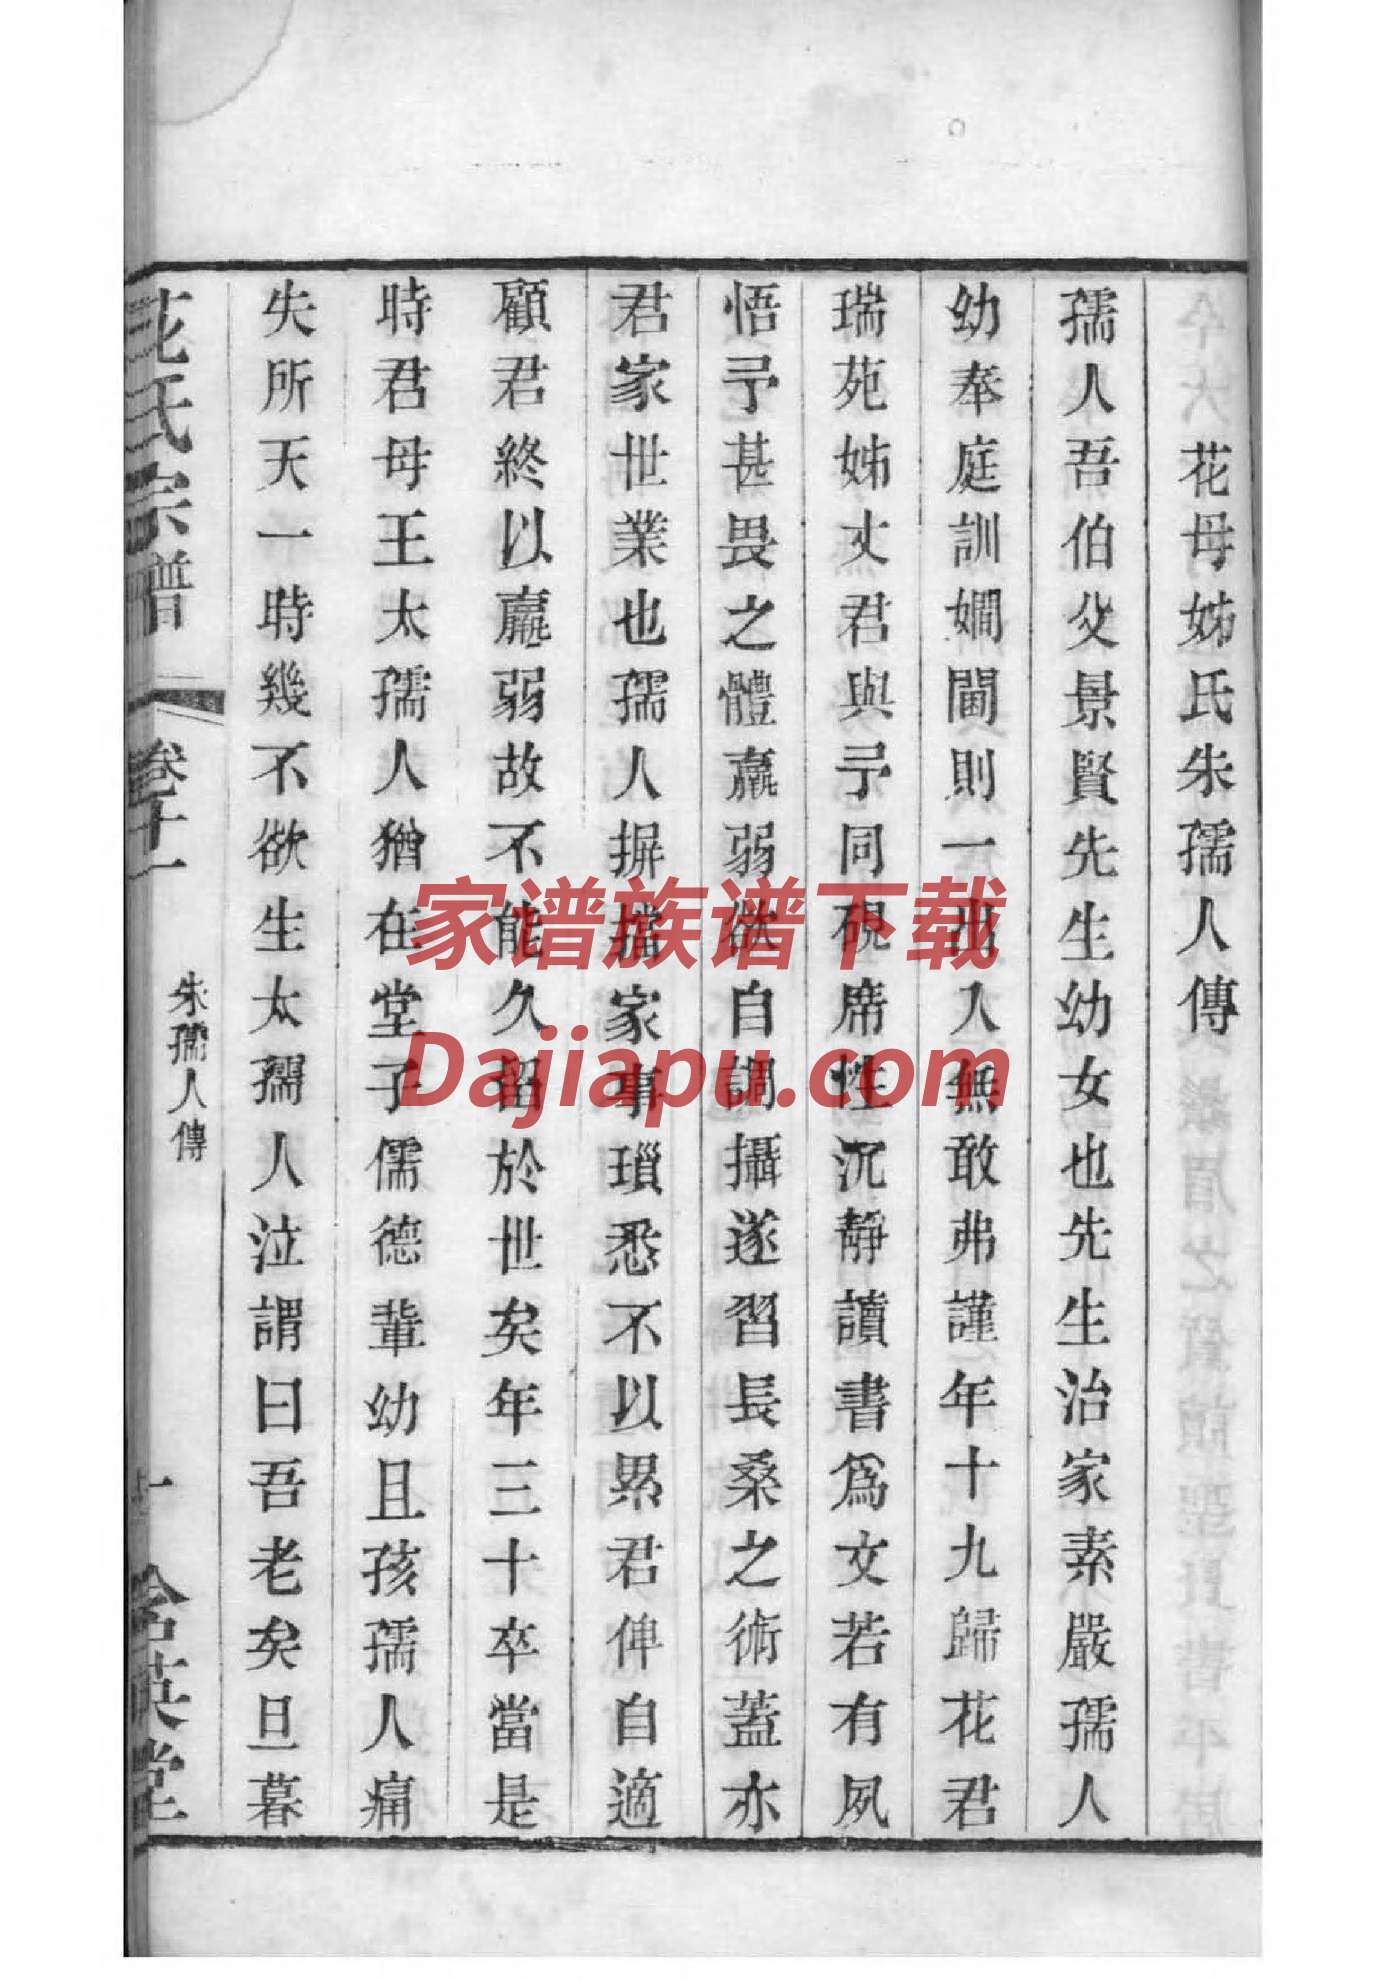 花母姊氏朱孺人傳
孺人吾伯父景賢先生幼女也先生治家素嚴孺人
幼奉庭訓嫺閫則一出入無敢弗謹年十九歸花君
瑞苑姊丈君與予同硯席性沉靜讀書為文若有夙
悟予甚畏之體羸弱欲自調攝遂習長桑之術蓋亦
君家世業也孺人摒擋家事瑣悉不以累君俾自適
顧君終以羸弱故不能久留於世矣年三十卒當是
時君母王太孺人猶在堂子儒德輩幼且孩孺人痛
失所天一時幾不欲生太孺人泣謂曰吾老矣旦暮
花氏宗譜
卷十一
朱孺人傳
一
含英堂
家谱族谱下载
Dajiapu.com